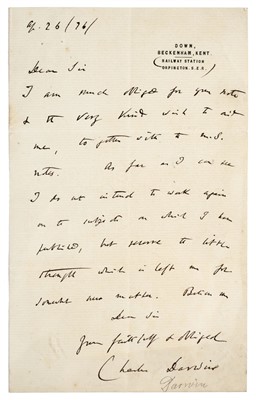 Ap. 26 / 76 /
DOWN,
BECKENHAM, KENT.
(RAILWAY STATION
ORPINGTON. S.E.R.)
Dear Sir
I am much obliged for your note
& the very kind wish to aid
me, together with the M.S.
notes. As far as I can see
I do not intend to work again
on the subjects on which I have
published, but reserve the little
strength which is left me for
somewhat new matter. Believe me
Dear Sir
Yours faithfully & obliged
Charles Darwin
Darwin